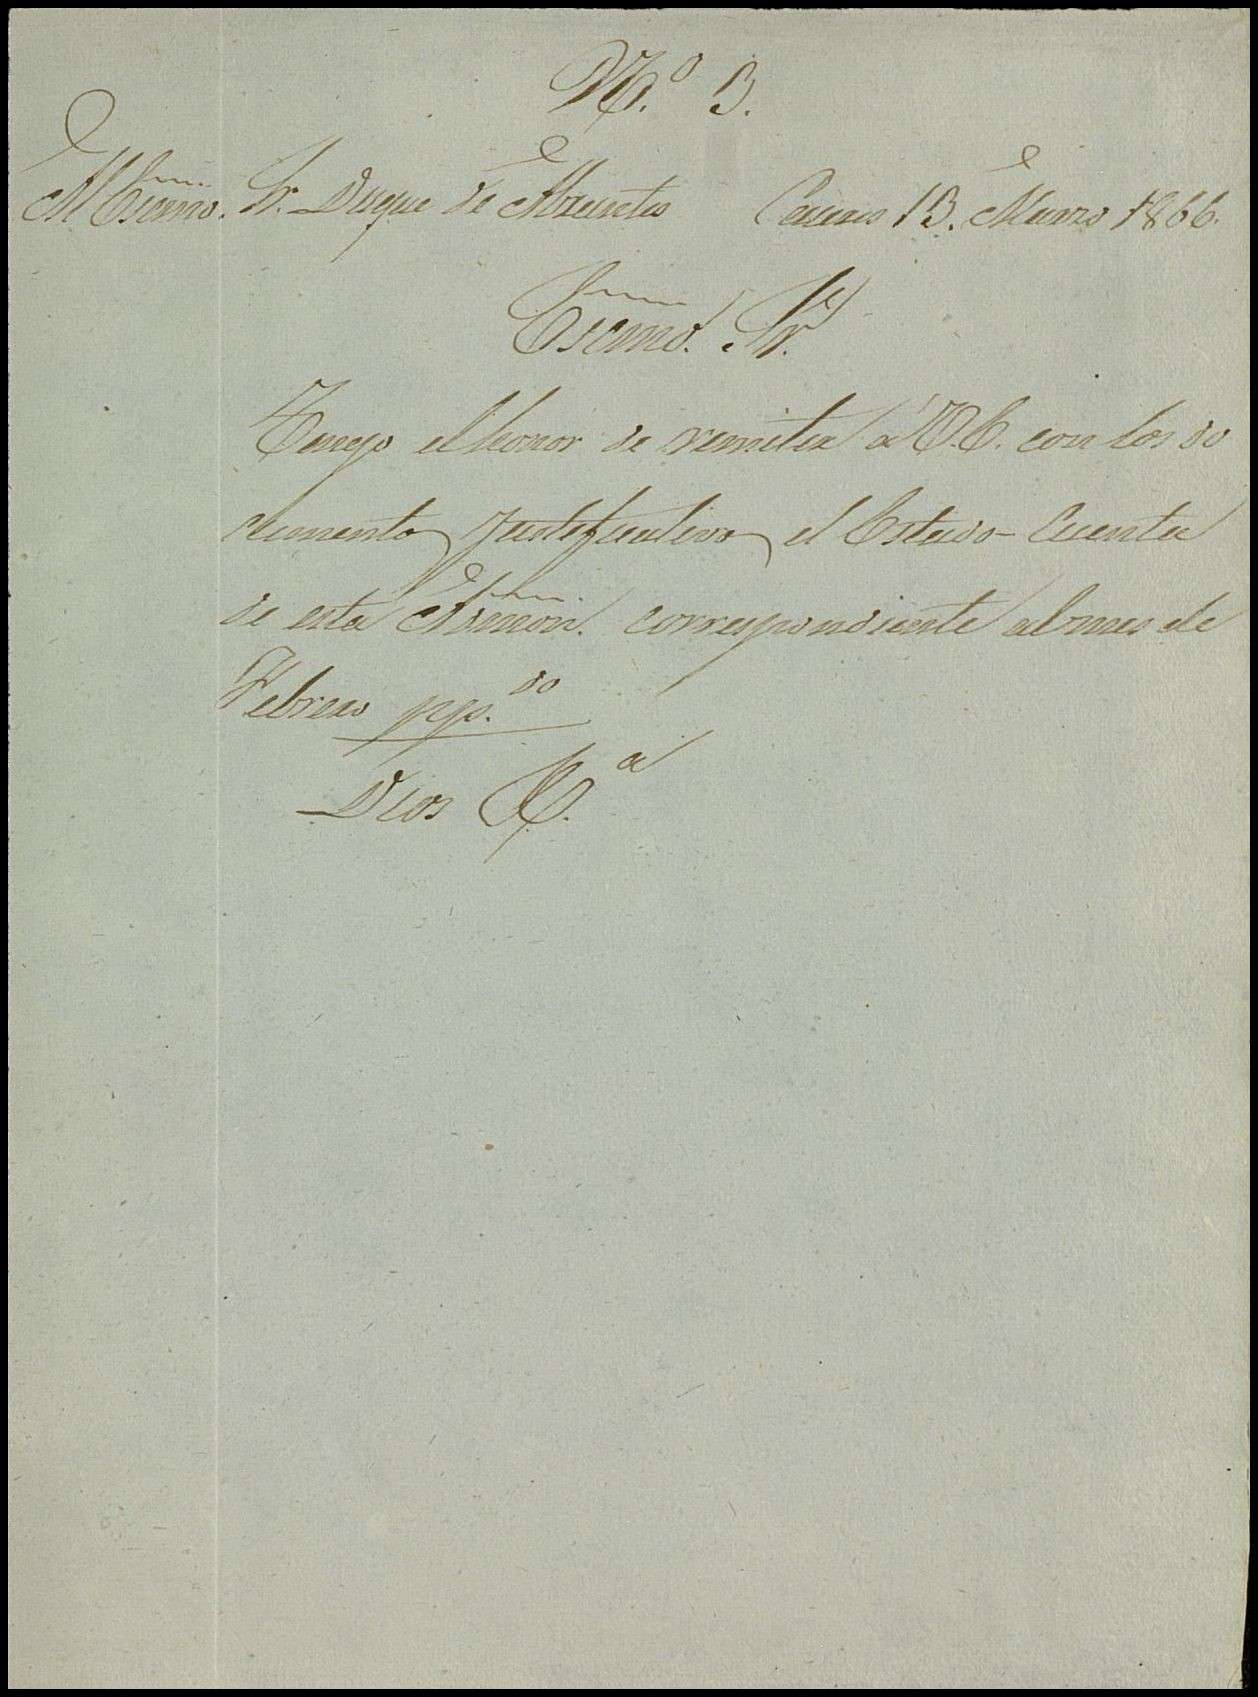 N.º 3.
Al Escmo. Sr. Duque de Abrantes Caceres 13. Marzo 1866.
Escmo. Sr.
Tengo el honor de remitir a V.E. con los do
cumentos justificativos el Estado-Cuenta
de esta Admon. correspondiente al mes de
Febrero ppo. do
Dios G. a